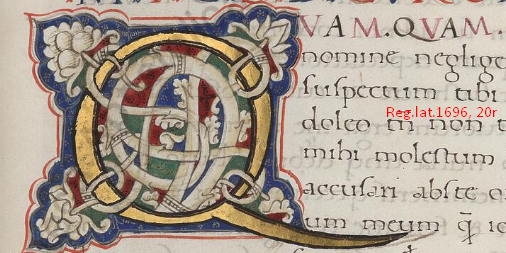 QVAM.QVAM.
nomine neglige
suspectum tibi
doleo tñ non t
Reg.lat.1696, 20r
mihi molestum
accusari abste o
um meum q̃ io